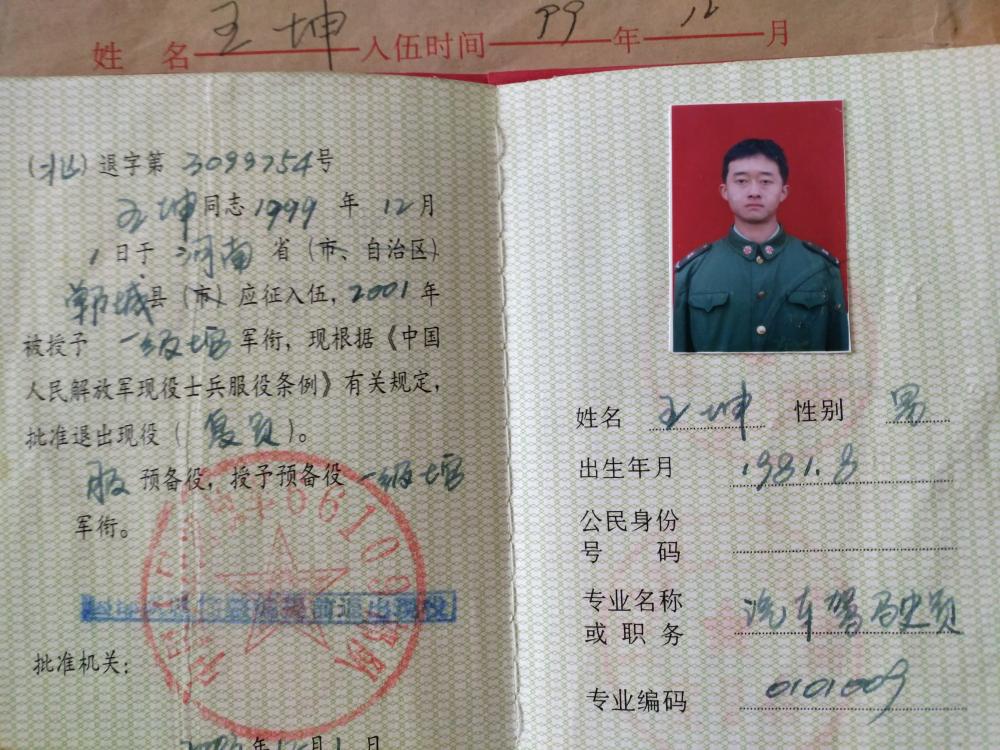 姓 名 王坤 入伍时间 99 年 12 月
(北) 退字第 3099754号
王坤 同志 1999 年 12 月
1 日于 河南 省 (市、自治区)
郸城 县 (市) 应征入伍, 2001 年
被授予 一级 军衔, 现根据《中国
人民解放军现役士兵服役条例》有关规定,
批准退出现役 ( 复员 )。
服 预备役, 授予预备役 一级
军衔。
66109部队
批准机关:
年 月 日
姓名 王坤 性别 男
出生年月 1981.8
公民身份
号 码
专业名称 汽车驾驶员
或 职 务
专业编码 0101009